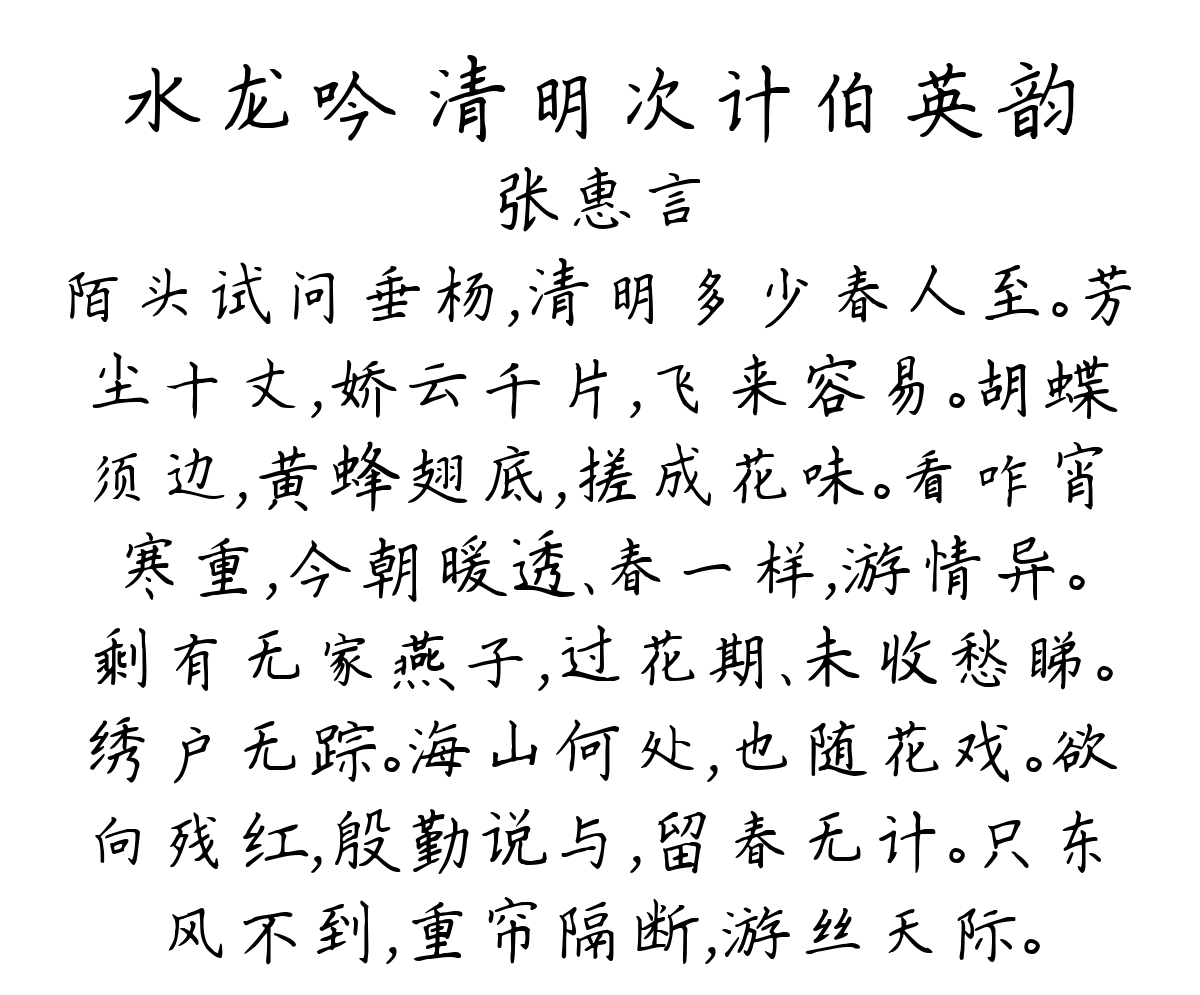 水龙吟 清明次计伯英韵
张惠言
陌头试问垂杨,清明多少春人至。芳
尘十丈,娇云千片,飞来容易。胡蝶
须边,黄蜂翅底,搓成花味。看咋宵
寒重,今朝暖透、春一样,游情异。
剩有无家燕子,过花期、未收愁睇。
绣户无踪。海山何处,也随花戏。欲
向残红,殷勤说与,留春无计。只东
风不到,重帘隔断,游丝天际。